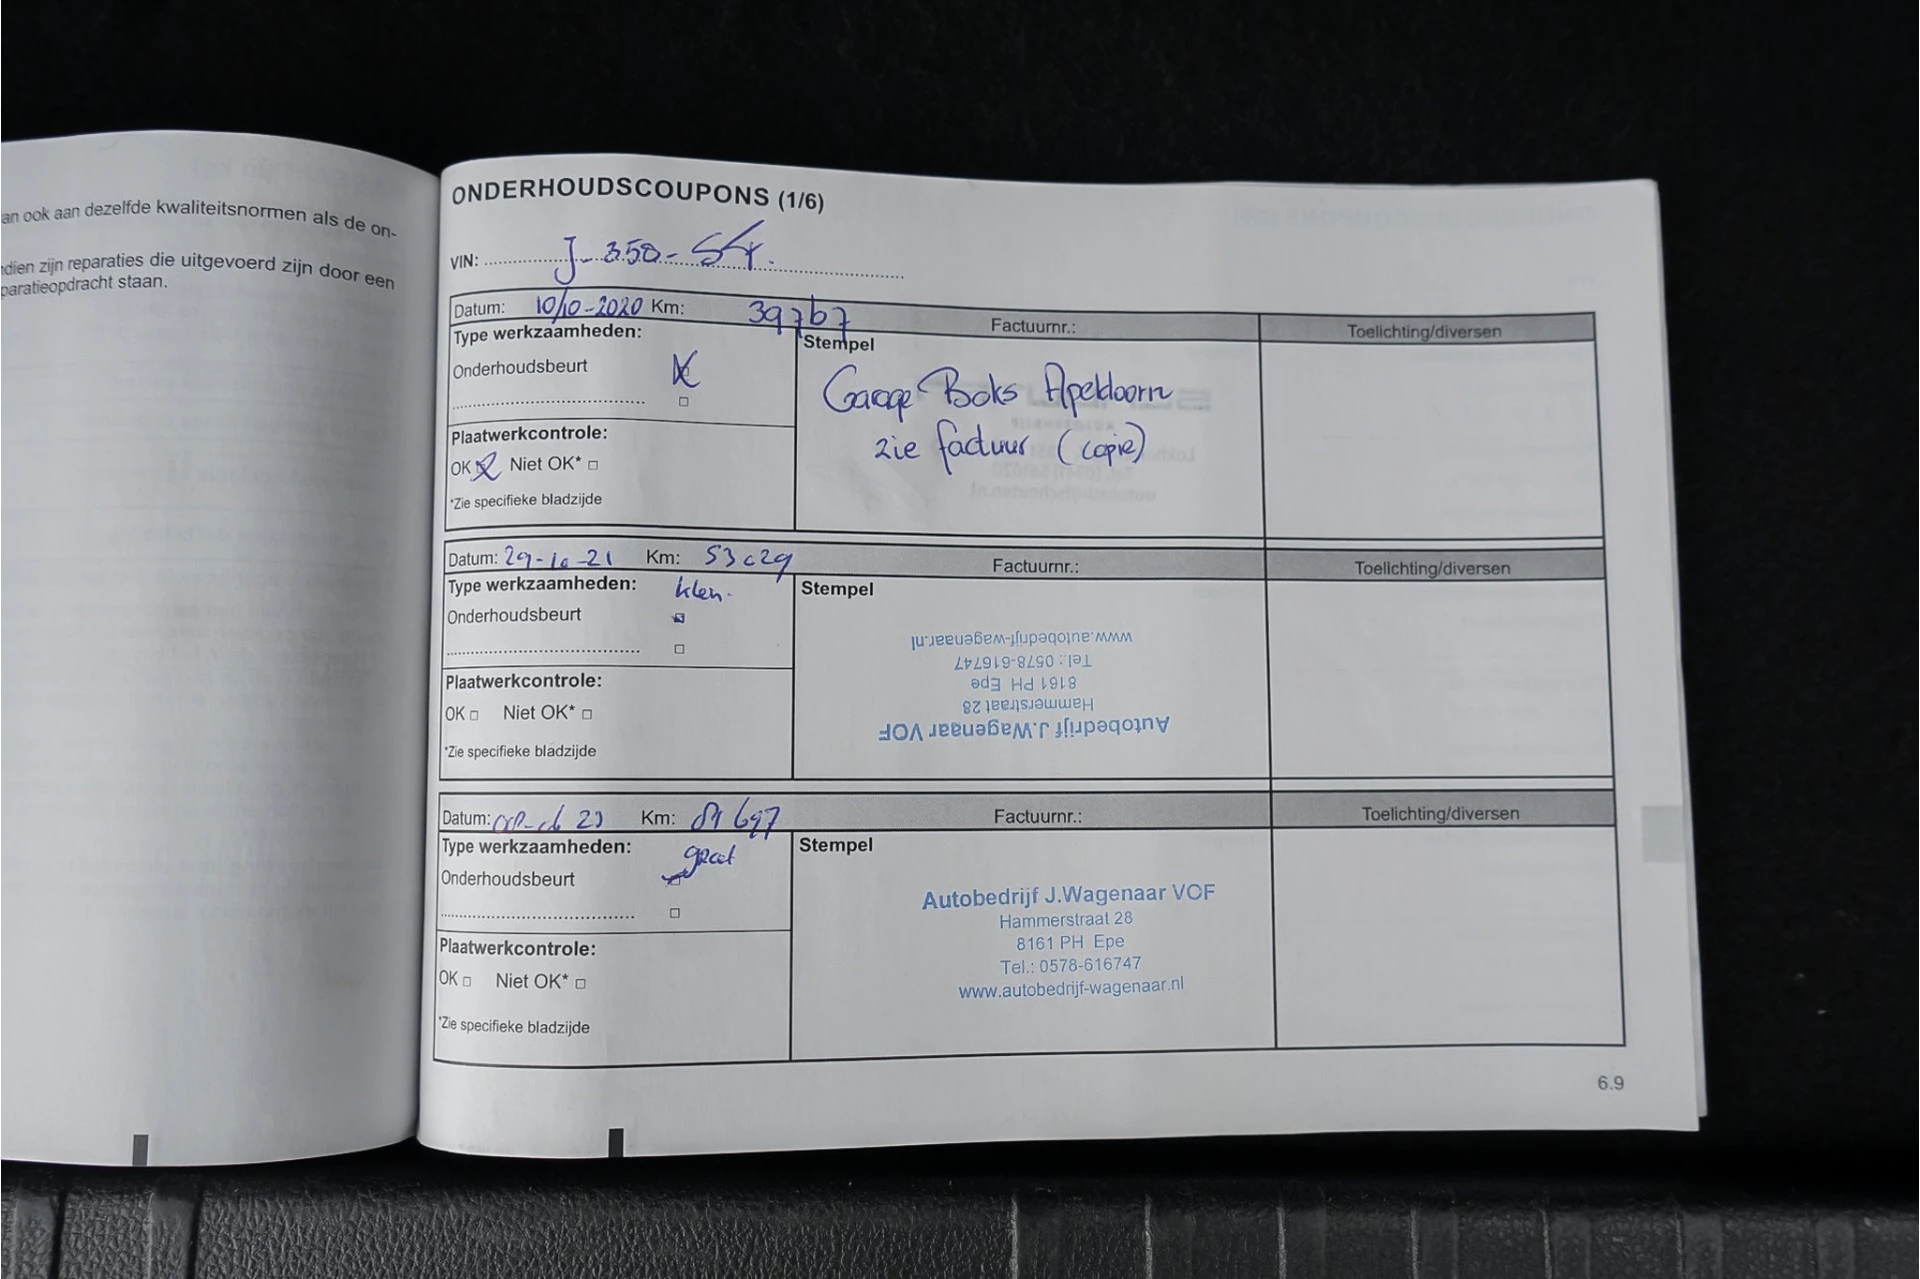 an ook aan dezelfde kwaliteitsnormen als de on-
dien zijn reparaties die uitgevoerd zijn door een
paratieopdracht staan.
ONDERHOUDSCOUPONS (1/6)
VIN: J-350-
Datum: 10/10-2020 Km: 39767 Factuurnr.: Toelichting/diversen
Type werkzaamheden: Stempel
Onderhoudsbeurt
Garage Boks Apeldoorn
zie factuur (copie)
Plaatwerkcontrole:
OK Niet OK*
*Zie specifieke bladzijde
Datum: 29-10-21 Km: 53029 Factuurnr.: Toelichting/diversen
Type werkzaamheden: klein Stempel
Onderhoudsbeurt
Plaatwerkcontrole:
OK Niet OK*
*Zie specifieke bladzijde
Autobedrijf J.Wagenaar VOF
Hammerstraat 28
8161 PH Epe
Tel.: 0578-616747
www.autobedrijf-wagenaar.nl
Datum: Km: Factuurnr.: Toelichting/diversen
Type werkzaamheden: groot Stempel
Onderhoudsbeurt
Plaatwerkcontrole:
OK Niet OK*
*Zie specifieke bladzijde
Autobedrijf J.Wagenaar VOF
Hammerstraat 28
8161 PH Epe
Tel.: 0578-616747
www.autobedrijf-wagenaar.nl
6.9